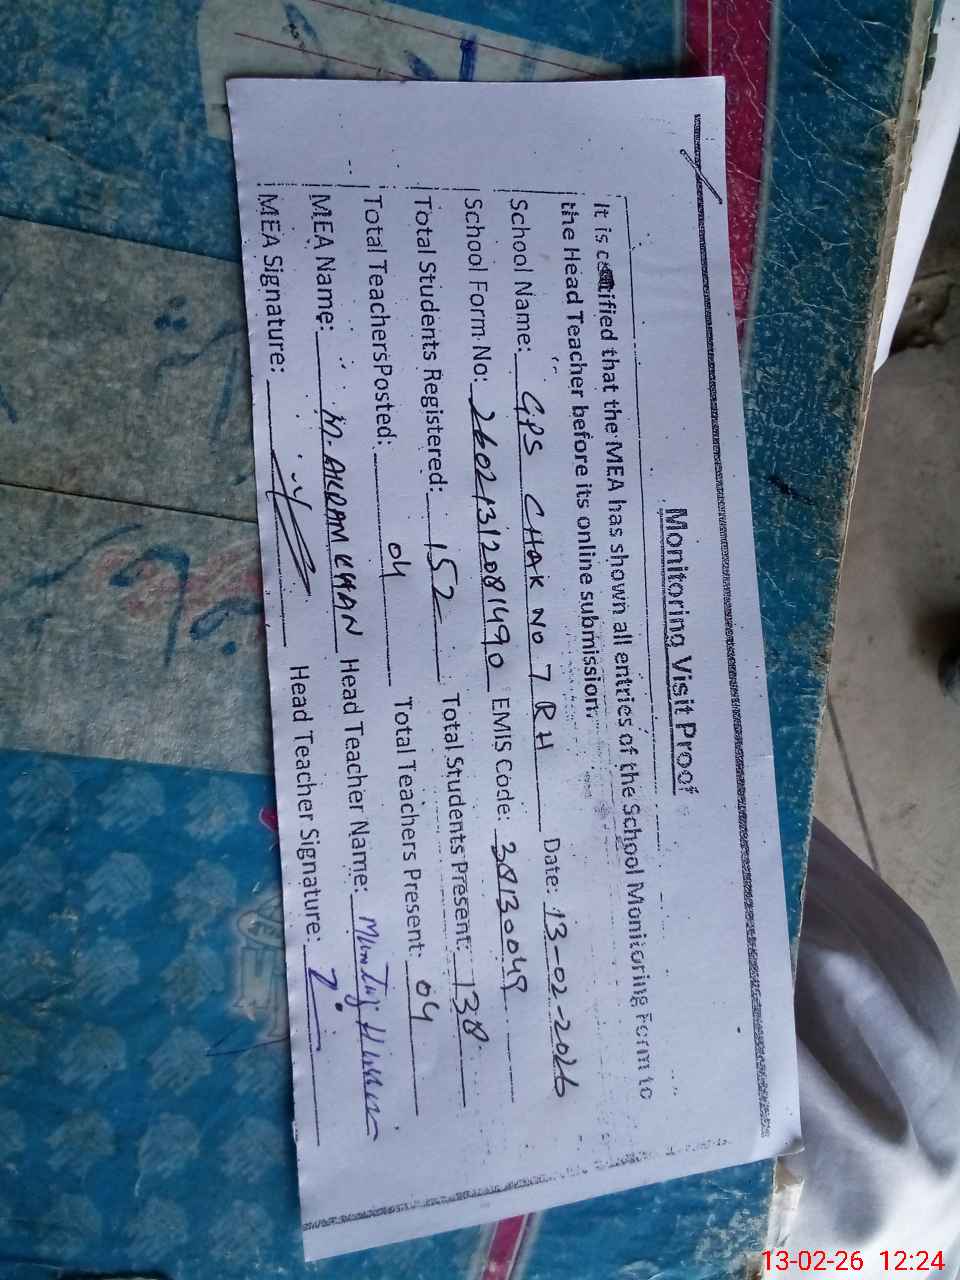 Monitoring Visit Proof
It is certified that the MEA has shown all entries of the School Monitoring Form to
the Head Teacher before its online submission.
School Name: GPS CHAK NO 7 RH Date: 13-02-2026
School Form No: 26021312081490 EMIS Code: 38130049
Total Students Registered: 152 Total Students Present: 138
Total Teachers Posted: 04 Total Teachers Present: 04
MEA Name: M. AKRAM KHAN Head Teacher Name: Mumtaz Hussain
MEA Signature: Head Teacher Signature:
13-02-26 12:24